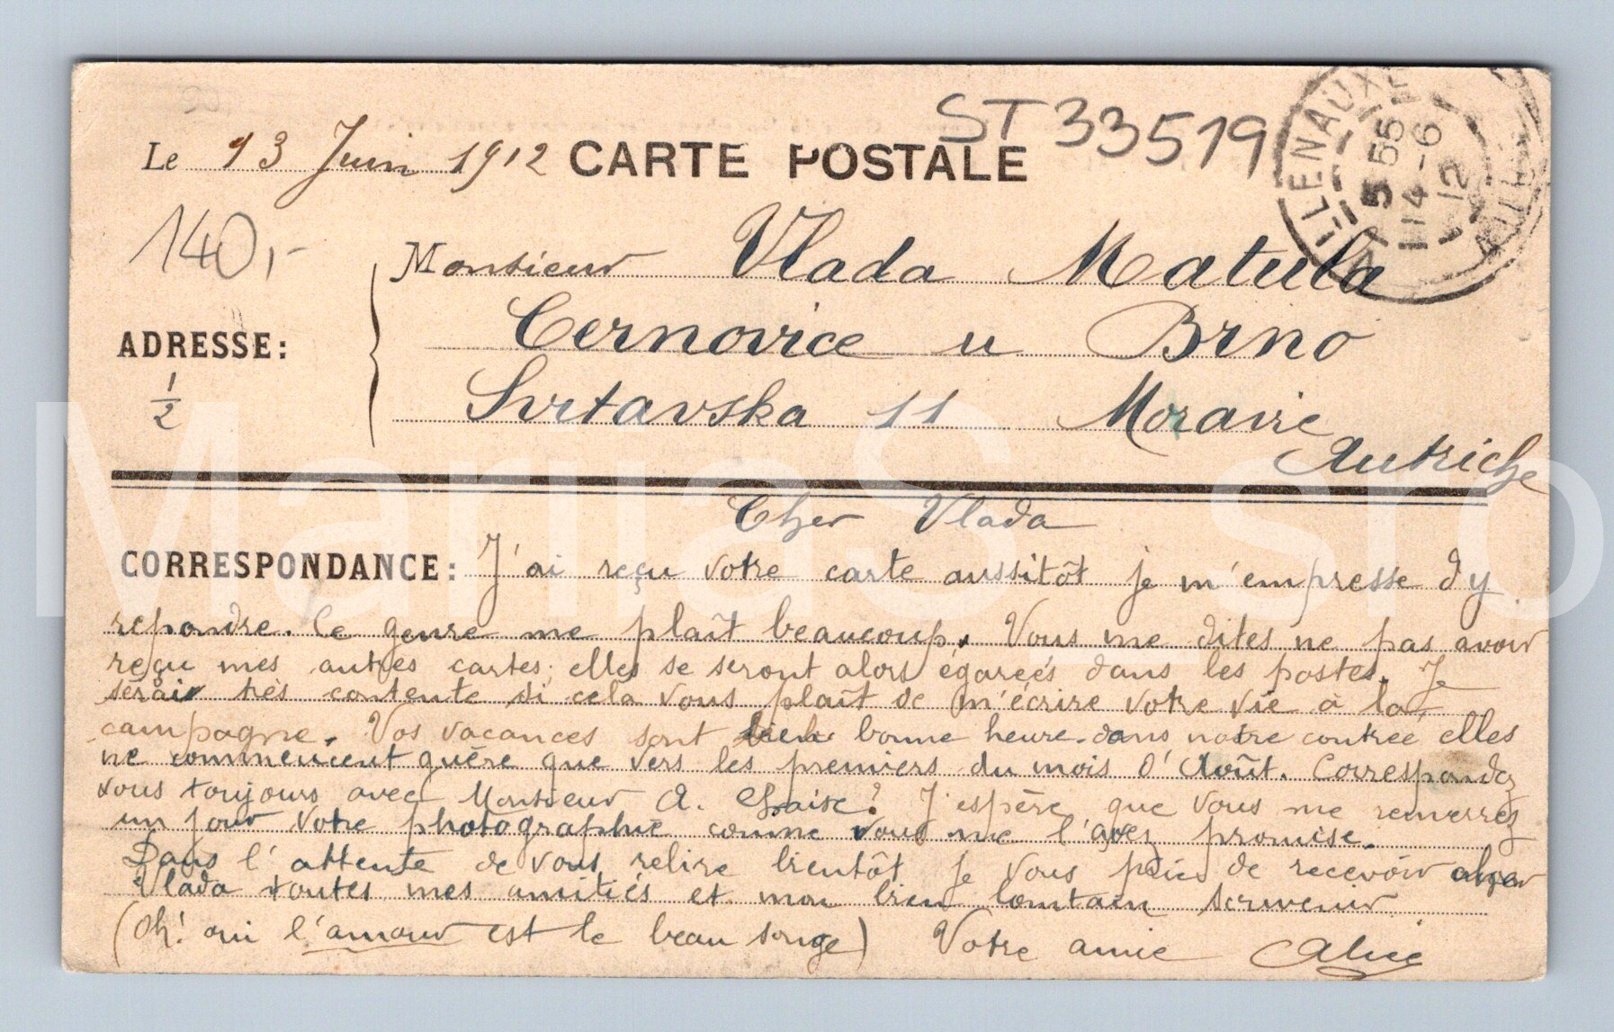 Le 13 Juin 1912 CARTE POSTALE ST 33519
140,-
VILLENAUX 5 55 14 -6 12
Monsieur Vlada Matula
Cernovice u Brno
ADRESSE:
Svrtavska 11 Moravie
1/2
Autriche
Cher Vlada
CORRESPONDANCE: J'ai reçu votre carte aussitôt je m'empresse d'y
repondre. Ce genre me plaît beaucoup. Vous me dites ne pas avoir
reçu mes autres cartes; elles se seront alors égarées dans les postes. Je
serais très contente si cela vous plaît de m'écrire votre vie à la
campagne. Vos vacances sont bien bonne heure. dans notre contrée elles
ne commencent guère que vers les premiers du mois d'Août. Correspondez
vous toujours avec Monsieur A. ? J'espère que vous me remerrez
un jour votre photographie comme vous me l'avez promise.
Dans l'attente de vous relire bientôt je vous prie de recevoir cher
Vlada toutes mes amitiés et mon bien lointain souvenir.
(Oh! oui l'amour est le beau songe) Votre amie Alice
MarijaS_sro